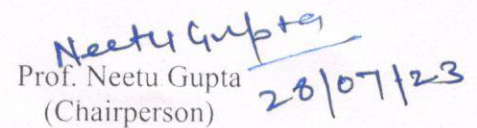 Neetu Gupta
Prof. Neetu Gupta
28/07/23
(Chairperson)